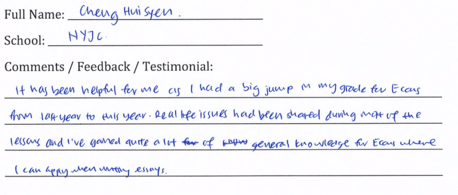 Full Name: Cheng Hui Syen.
School: NYJC.
Comments / Feedback / Testimonial:
It has been helpful for me as I had a big jump in my grade for Econs
from last year to this year. Real life issues had been shared during most of the
lessons and I've gained quite a lot of general knowledge for Econs where
I can apply when writing essays.